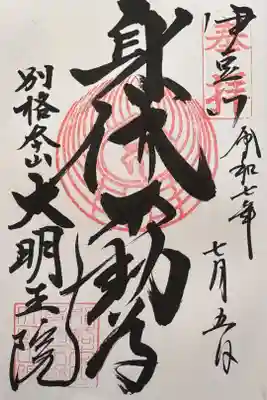 奉拝
伊豆山
令和七年
七月五日
身代不動尊
別格本山
大明王院